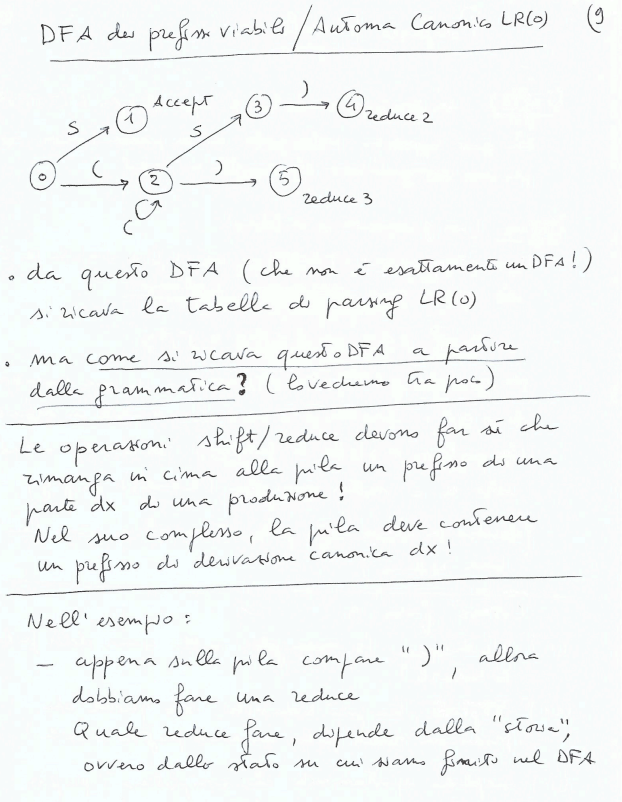 DFA dei prefissi viabili / Automa Canonico LR(0) (9
Accept
S
1
S
3
)
4
reduce 2
0
(
2
)
5
reduce 3
(
• da questo DFA (che non è esattamente un DFA!)
si ricava la tabella di parsing LR(0)
• ma come si ricava questo DFA a partire
dalla grammatica? (lo vedremo tra poco)
Le operazioni shift/reduce devono far sì che
rimanga in cima alla pila un prefisso di una
parte dx di una produzione!
Nel suo complesso, la pila deve contenere
un prefisso di derivazione canonica dx!
Nell'esempio:
– appena sulla pila compare ")", allora
dobbiamo fare una reduce
Quale reduce fare, dipende dalla "storia",
ovvero dallo stato su cui siamo finiti nel DFA